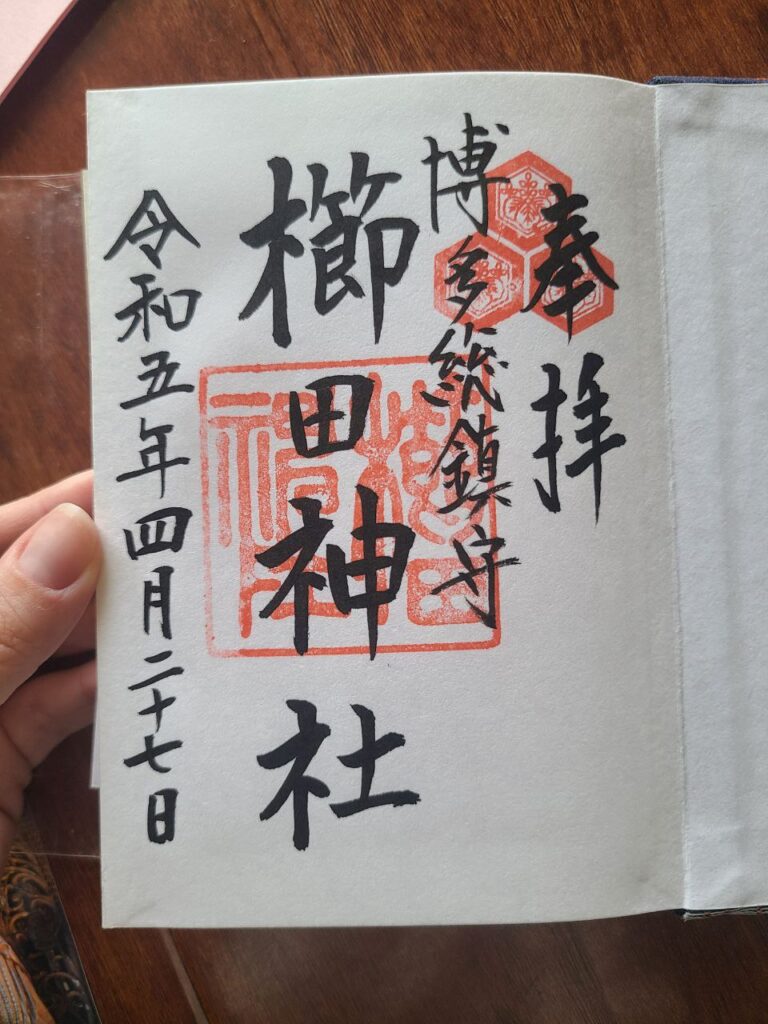 奉拝
博多総鎮守
櫛田神社
令和五年四月二十七日